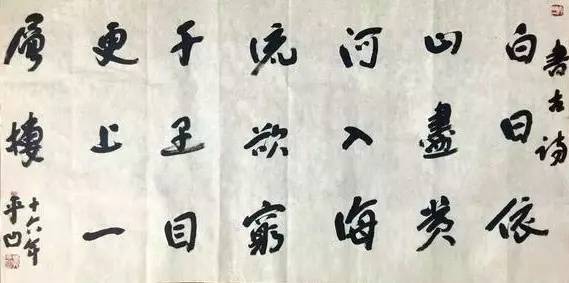 書古诗
白日依
山盡黄
河入海
流欲窮
千里目
更上一
層樓
十六年
平凹